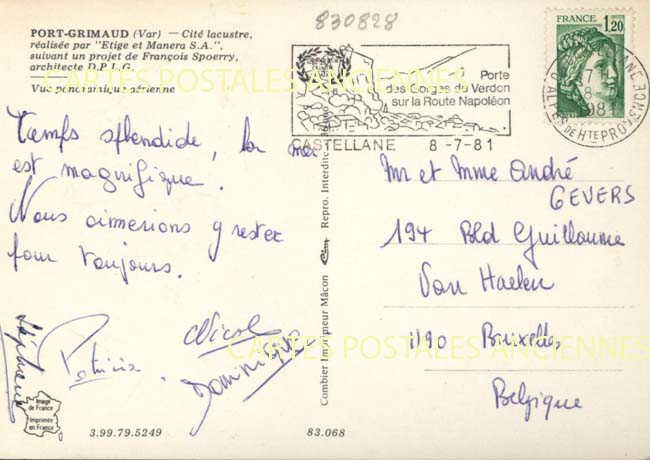 830828
PORT-GRIMAUD (Var) — Cité lacustre,
réalisée par "Etige et Manera S.A.",
suivant un projet de François Spoerry,
architecte D.P.L.G.
Vue panoramique aérienne
CARTES POSTALES ANCIENNES
Porte
des Gorges du Verdon
sur la Route Napoléon
CASTELLANE 8-7-81
FRANCE 1,20
ALPES DE HTE PROVENCE
Temps splendide, la mer
est magnifique.
Nous aimerions y rester
pour toujours.
Stéphane
Patricia
Nicole
Dominique
Mr et Mme André
GEVERS
194 Bld Guillaume
Van Haelen
1190 Bruxelles
Belgique
Combier Imprimeur Mâcon Cim Repro. Interdite
CARTES POSTALES ANCIENNES
Image
de France
Imprimée
en France
3.99.79.5249
83.068